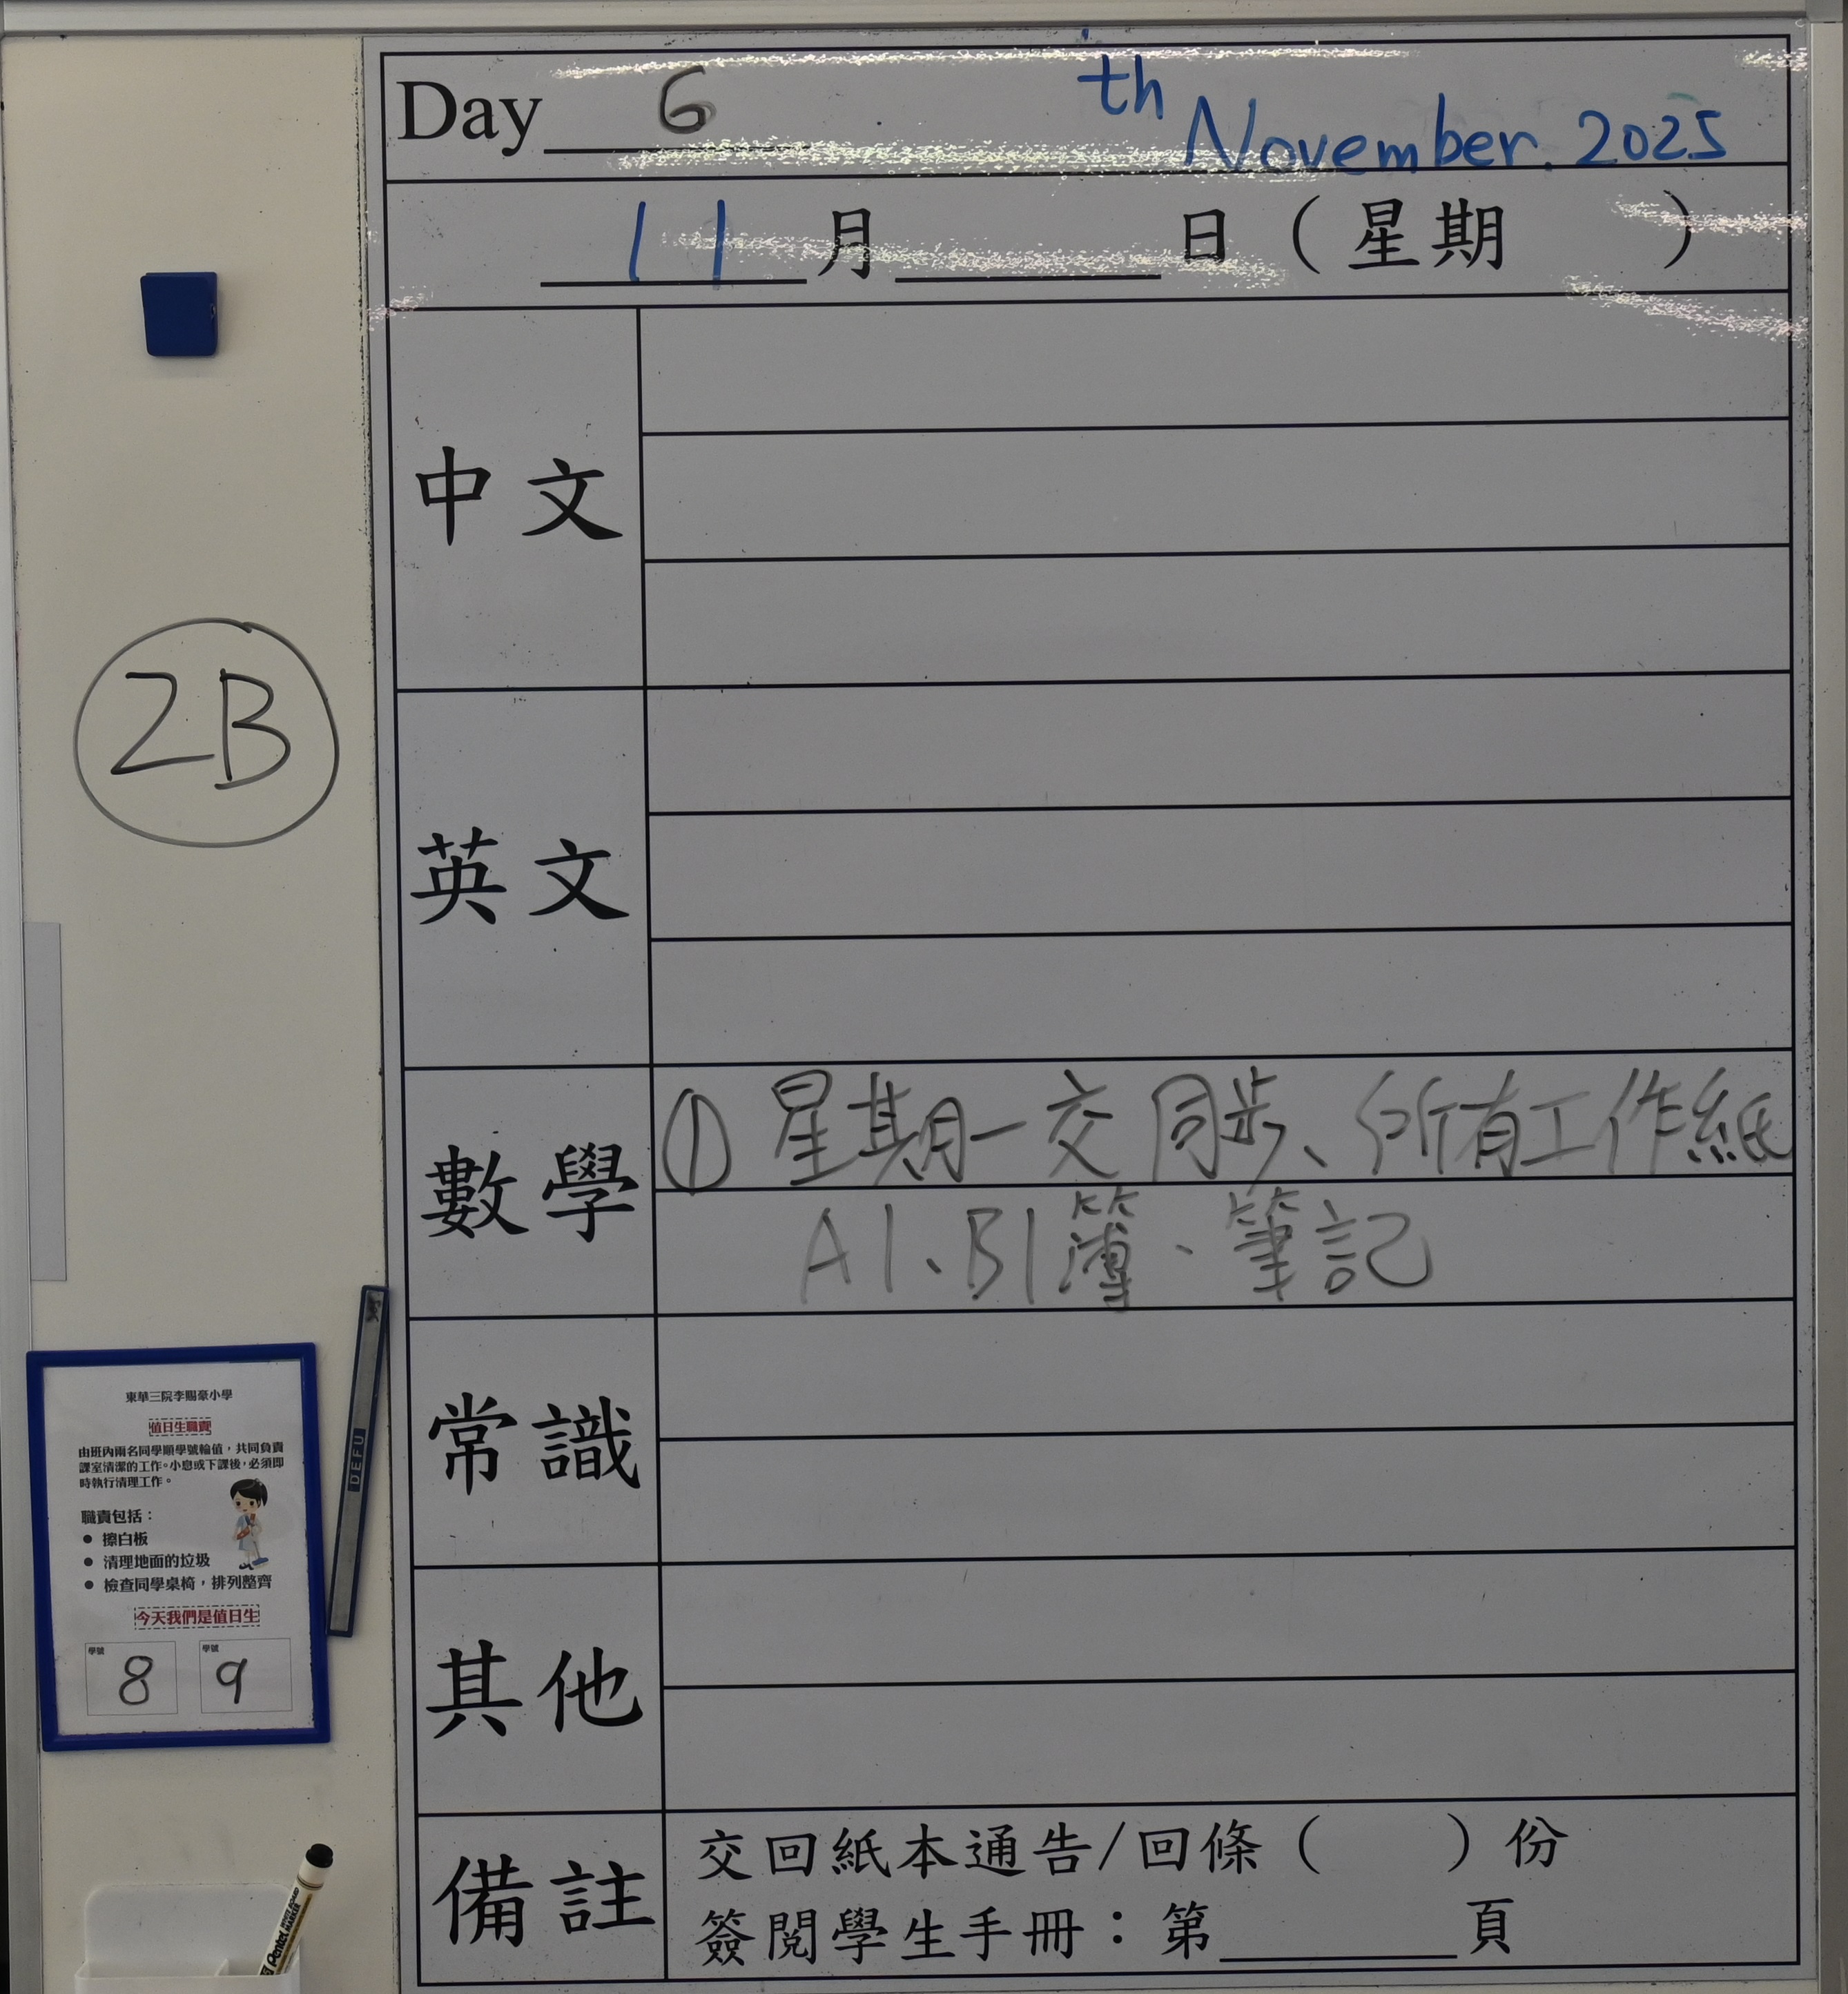 Day 6 th November. 2025
11 月 日 ( 星期 )
中文
英文
2B
數學
① 星期一交同步、所有工作紙
A1、B1簿、筆記
常識
其他
備註
交回紙本通告/回條 ( ) 份
簽閱學生手冊：第 頁
東華三院李賜豪小學
值日生職責
由班內兩名同學順學號輪值，共同負責
課室清潔的工作。小息或下課後，必須即
時執行清理工作。
職責包括：
● 擦白板
● 清理地面的垃圾
● 檢查同學桌椅，排列整齊
今天我們是值日生
學號 8 學號 9
DEFU
Pentel WHITE BOARD MARKER